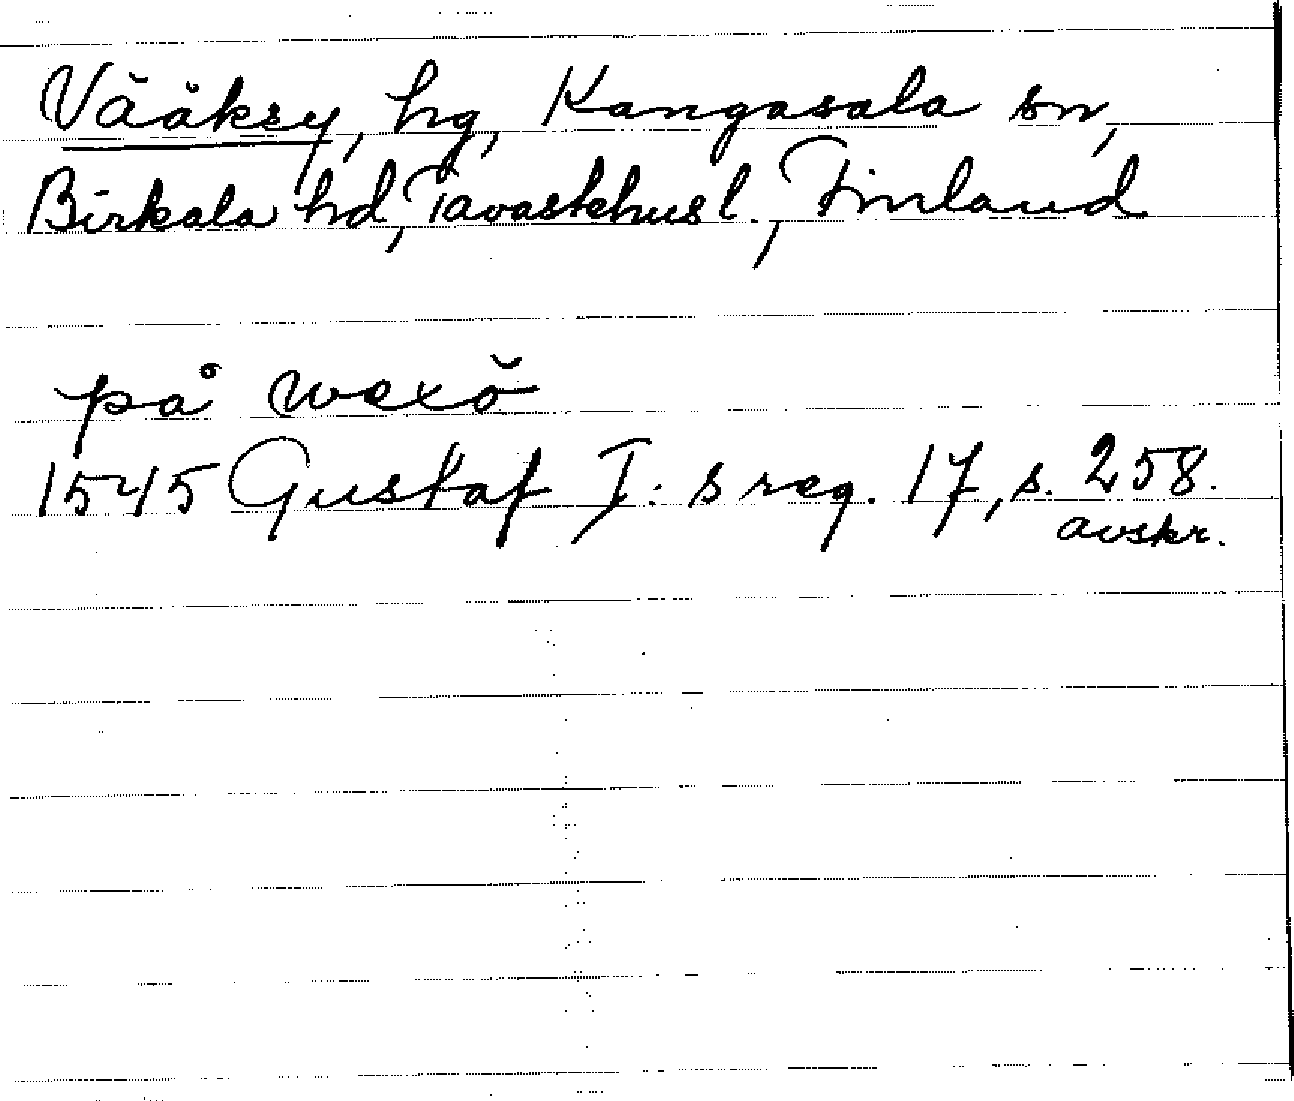 Vääksy, hg, Kangasala sn,
Birkala hd, Tavastehus l., Finland
på wexö
1545 Gustaf I:s reg. 17, s. 258.
avskr.